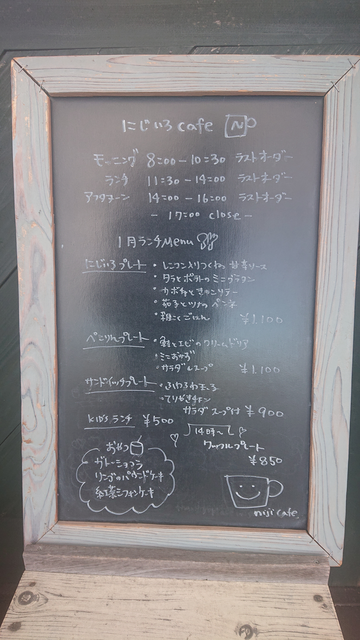 にじいろ cafe
モーニング 8:00 - 10:30 ラストオーダー
ランチ 11:30 - 14:00 ラストオーダー
アフタヌーン 14:00 - 16:00 ラストオーダー
- 17:00 close -
1月ランチMenu
にじいろプレート ・レンコン入りつくね 甘辛ソース
・タラとポテトのミニグラタン
・カボチャとキャンデー
・茄子とツナのペンネ
・雑こくごはん ¥1,100
ぺこりんプレート ・エビのクリームドリア
・ミニおかず
・サラダ スープ ¥1,100
サンドイッチプレート ・ふわふわ玉子
・てりやきチキン
サラダ スープ付 ¥900
KIDS ランチ ¥500
14時〜
ワッフルプレート
¥850
おやつ
ガトーショコラ
リンゴのパウンドケーキ
紅茶シフォンケーキ
niji cafe